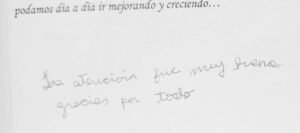 podamos día a día ir mejorando y creciendo...
La atención fue muy buena
gracias por todo